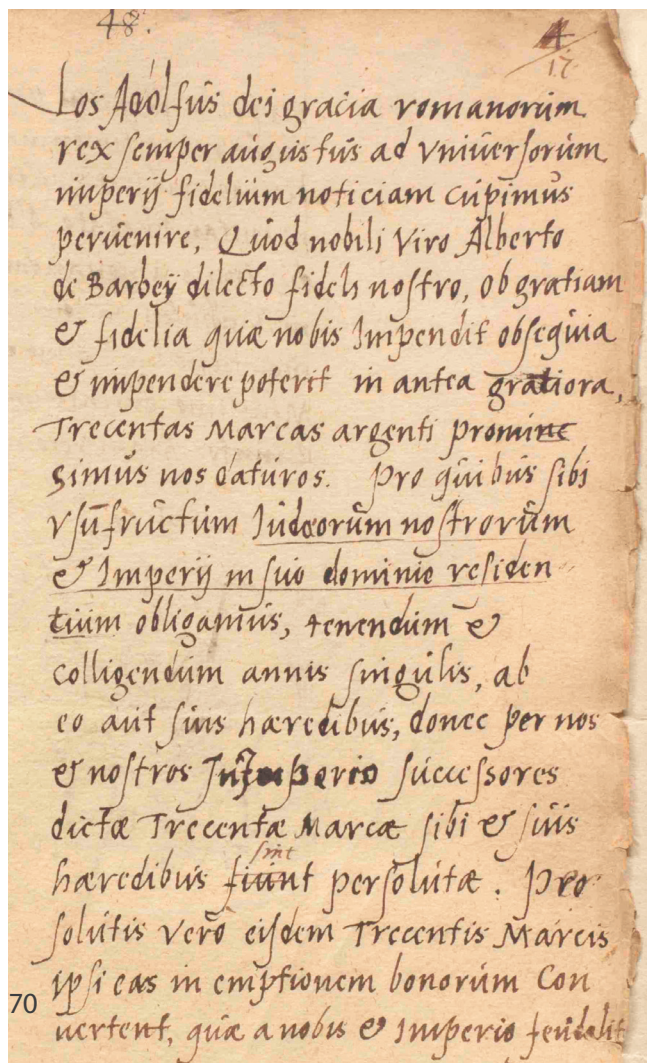 48.
4
17
Nos Adolfus dei gracia romanorum
rex semper augustus ad vniuersorum
imperij fidelium noticiam cupimus
peruenire, Quod nobili Viro Alberto
de Barbeÿ dilecto fideli nostro, ob gratiam
& fidelia quæ nobis Impendit obsequia
& impendere poterit in antea gratiora,
Trecentas Marcas argenti promine
simus nos daturos. Pro quibus sibi
vsufructum Iudæorum nostrorum
& Imperij in suo dominio residen
tium obligamus, tenendum &
colligendum annis singulis, ab
eo aut suis hæredibus, donec per nos
& nostros In Imperio successores
dictæ Trecentæ Marcæ sibi & suis
sint
hæredibus fiunt persolutæ. Pro
solutis vero eisdem Trecentis Marcis
ipsi eas in emptionem bonorum Con
uertent, quæ a nobis & Imperio feudalit
70